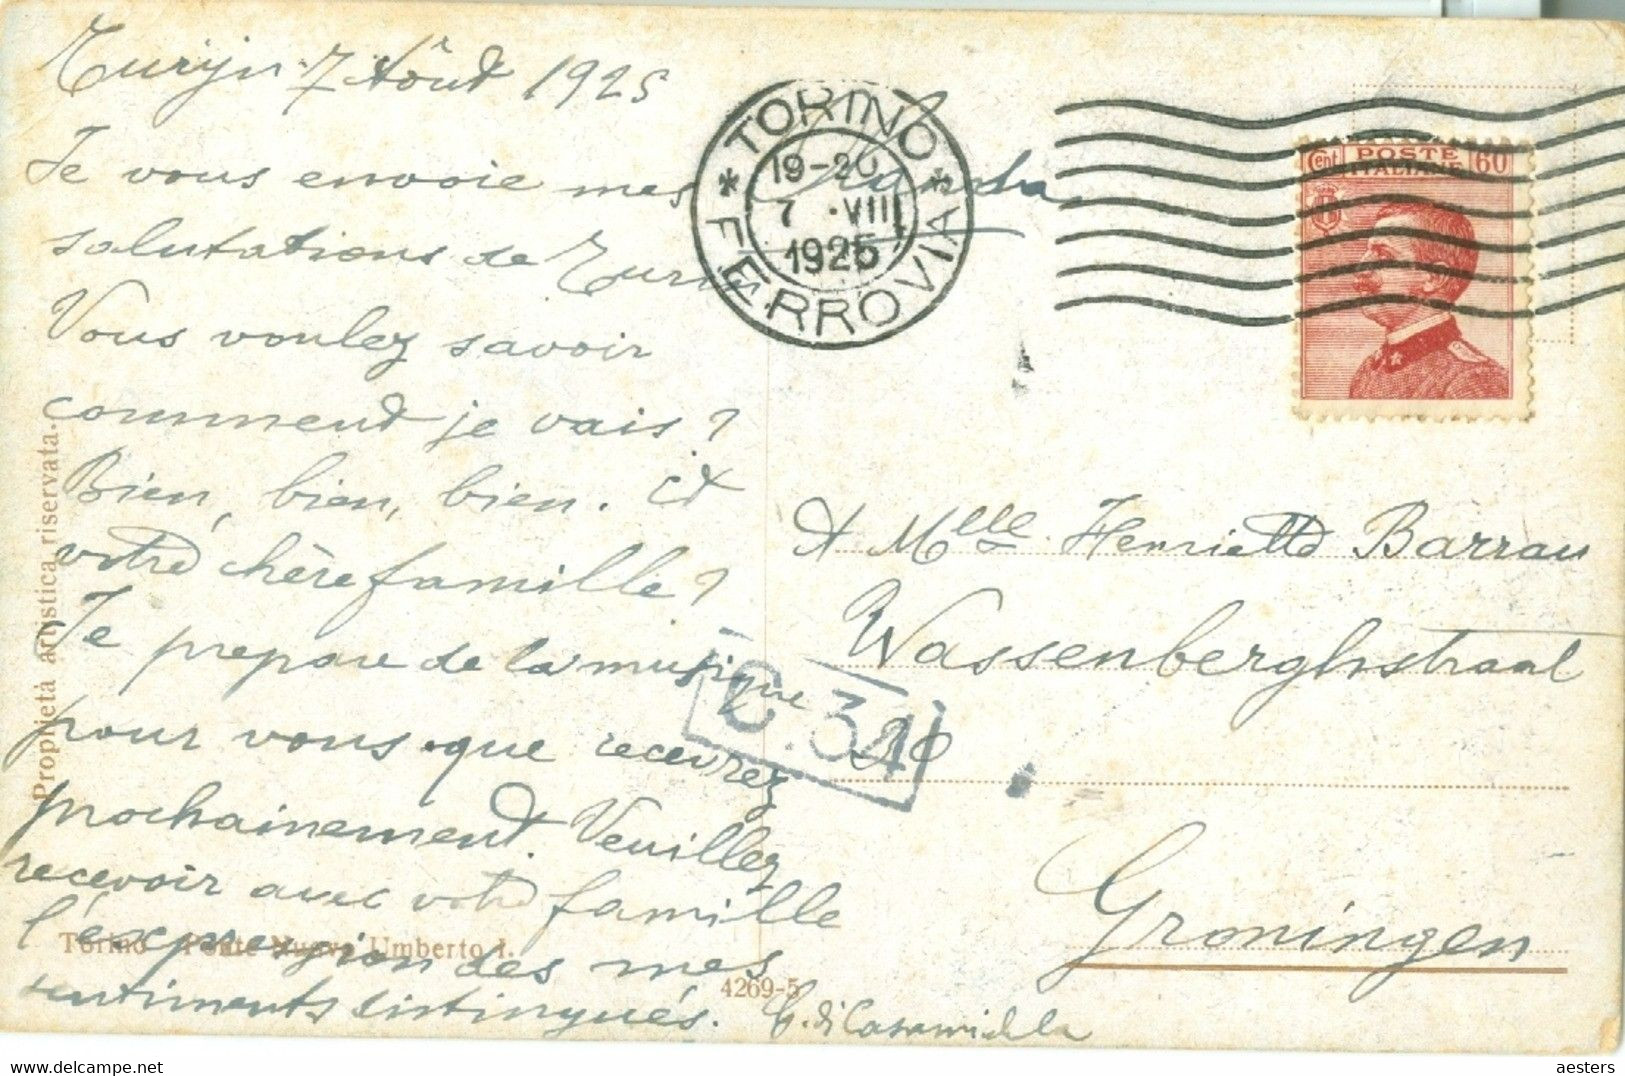 Turijn 7 Aôut 1925
Je vous envoie mes
salutations de Turin
Vous voulez savoir
comment je vais?
Bien, bien, bien. Et
votre chère famille?
Je prepare de la musique
pour vous que recevrez
prochainement. Veuillez
recevoir avec votre famille
l'expression des mes
sentiments distingués.
TORINO
FERROVIA
19-20
7 ·VIII
1925
Cent POSTE 60
ITALIANE
A Mlle Henriette Barrau
Wassenberghstraat
Groningen
C.31
Proprietà artistica riservata.
Torino - Ponte Nuovo Umberto I.
4269-5
delcampe.net
aesters